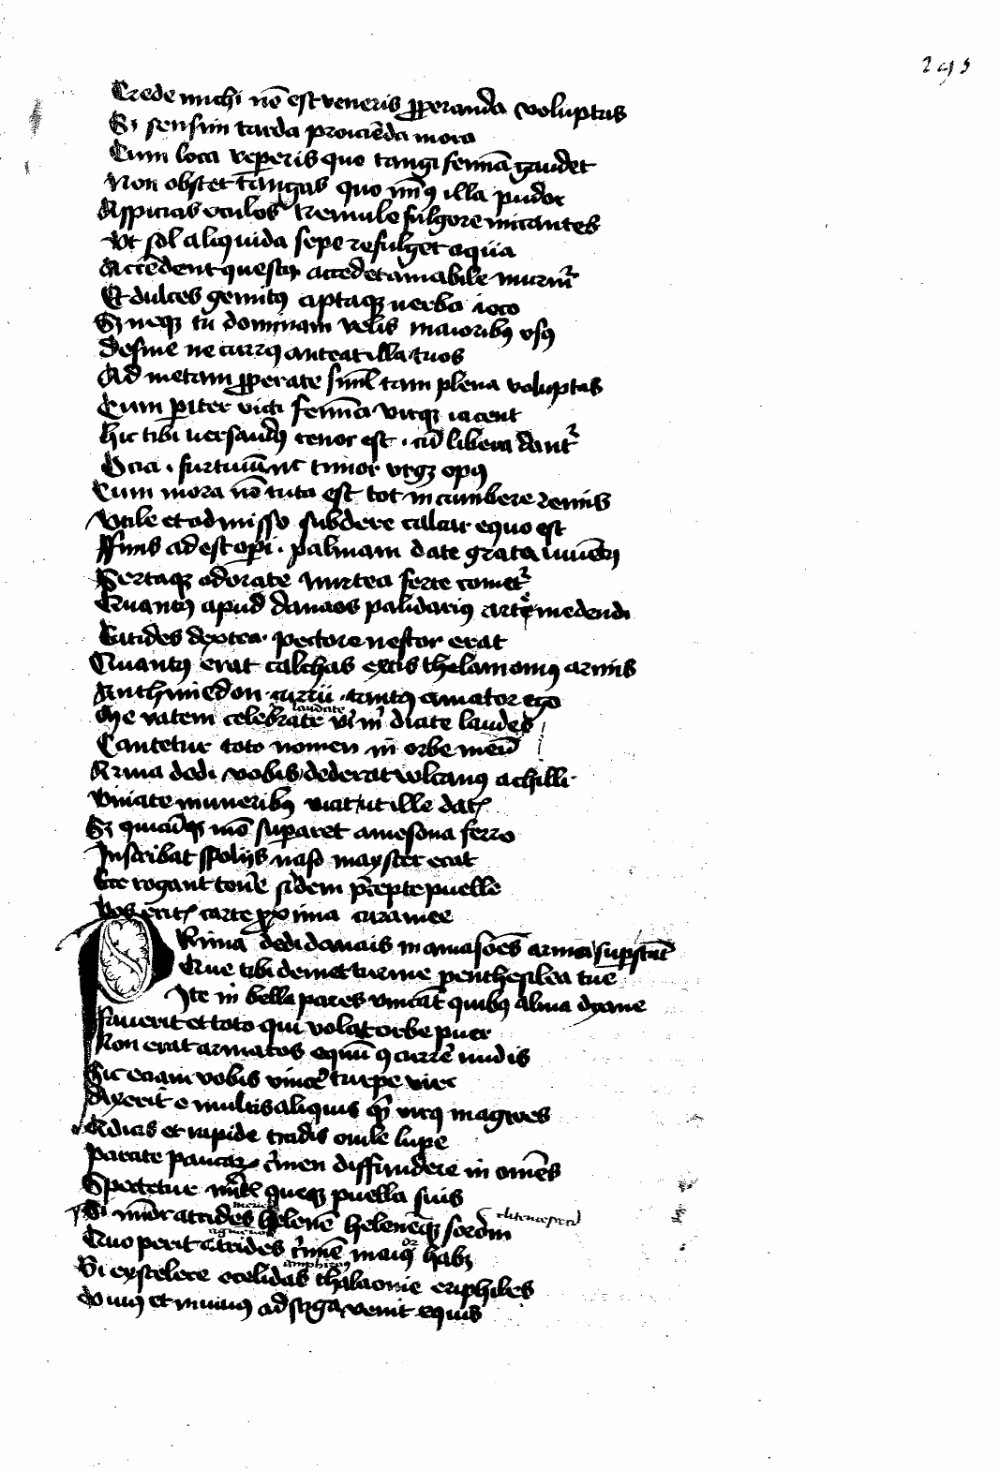 295
Crede michi nō est veneris ꝓperanda voluptas
Sꝫ sensim tarda proiciēda mora
Cum loca repperis quo tangi femīa gaudet
Non obstet tangas quo minꝰ illa pudor
Aspicias oculos tremulo fulgore micantes
Ut sol a liquida sepe refulget aqua
Accedent questꝰ accedet amabile murmꝛ
Et dulces gemitꝰ aptaqꝫ uerba ioco
Sꝫ neqꝫ tu dominam velis maioribꝰ vsꝰ
Desine ne currꝰ anteat illa tuos
Ad metam ꝓperate simĺ tam plena voluptas
Cum pariter victi femīa virqꝫ iacent
Hic tibi uersandꝰ tenor est . cū libera dantꝛ
Ocia . furtiuū nec timor vrgꝫ opꝰ
Cum mora nō tuta est tot incumbere remis
Vtile et admisso subdere calcar equo est
Ffinis adest operi . palmam date grata iuuētꝰ
Sertaqꝫ odorate mirtea ferte comeꝛ
Quantꝰ apud danaos palidarius arte medendi
Eacides dextra . pectore nestor erat
Quantꝰ erat calchas extis thelamonius armis
Anthimedon . currū . tantꝰ amator ego
laudate
Me vatem celebrate viri mi dicate laudes
Cantetur toto nomen in orbe meū
Arma dedi vobis dederat volcanꝰ achilli
Viniate muneribꝰ vicit ut ille datꝭ
Sꝫ quicūqꝫ meo superaret amesona ferro
Inscribat spolijs naso mayster erat
Ecce rogant tenere sidem precepte puelle
Vos eritꝭ carte ꝓxima cura mee
Arma dedi danais in amasones arma supersunt
Que tibi demet turme penthesilea tue
Ite in bella pares vincāt quibꝰ alma dyone
Fauerit et toto qui volat orbe puer
Non erat armatos equū ꝯcurrere nudis
Sic eciam vobis vincere turpe viri
Dixerit e multis aliquis quid virꝰ magives
Adicis et rapide tradis ouile lupe
Parcite paucarꝫ crimen diffundere in omēs
Spectetur meritis queqꝫ puella suis
Si minor attrides helenē helenesqꝫ sororem
Quo premit attrides crimine maior habꝫ
amphiraus
Si exscelere ocelidas thalaonie eriphiles
Viuus et in viuis ad stiga venit equis